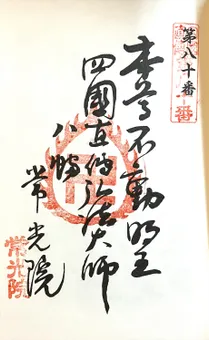 第八十番
本尊不動明王
四國直傳弘法大師
八勝
常光院
常光院